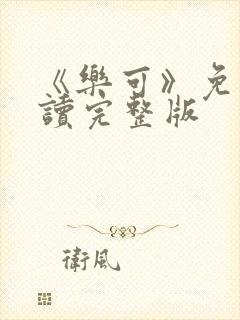 《樂可》免
讀完整版
衛風